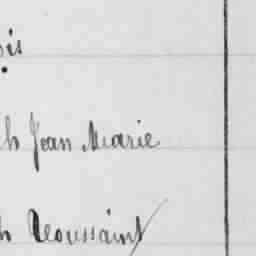 is
h Jean Marie
h Toussaint